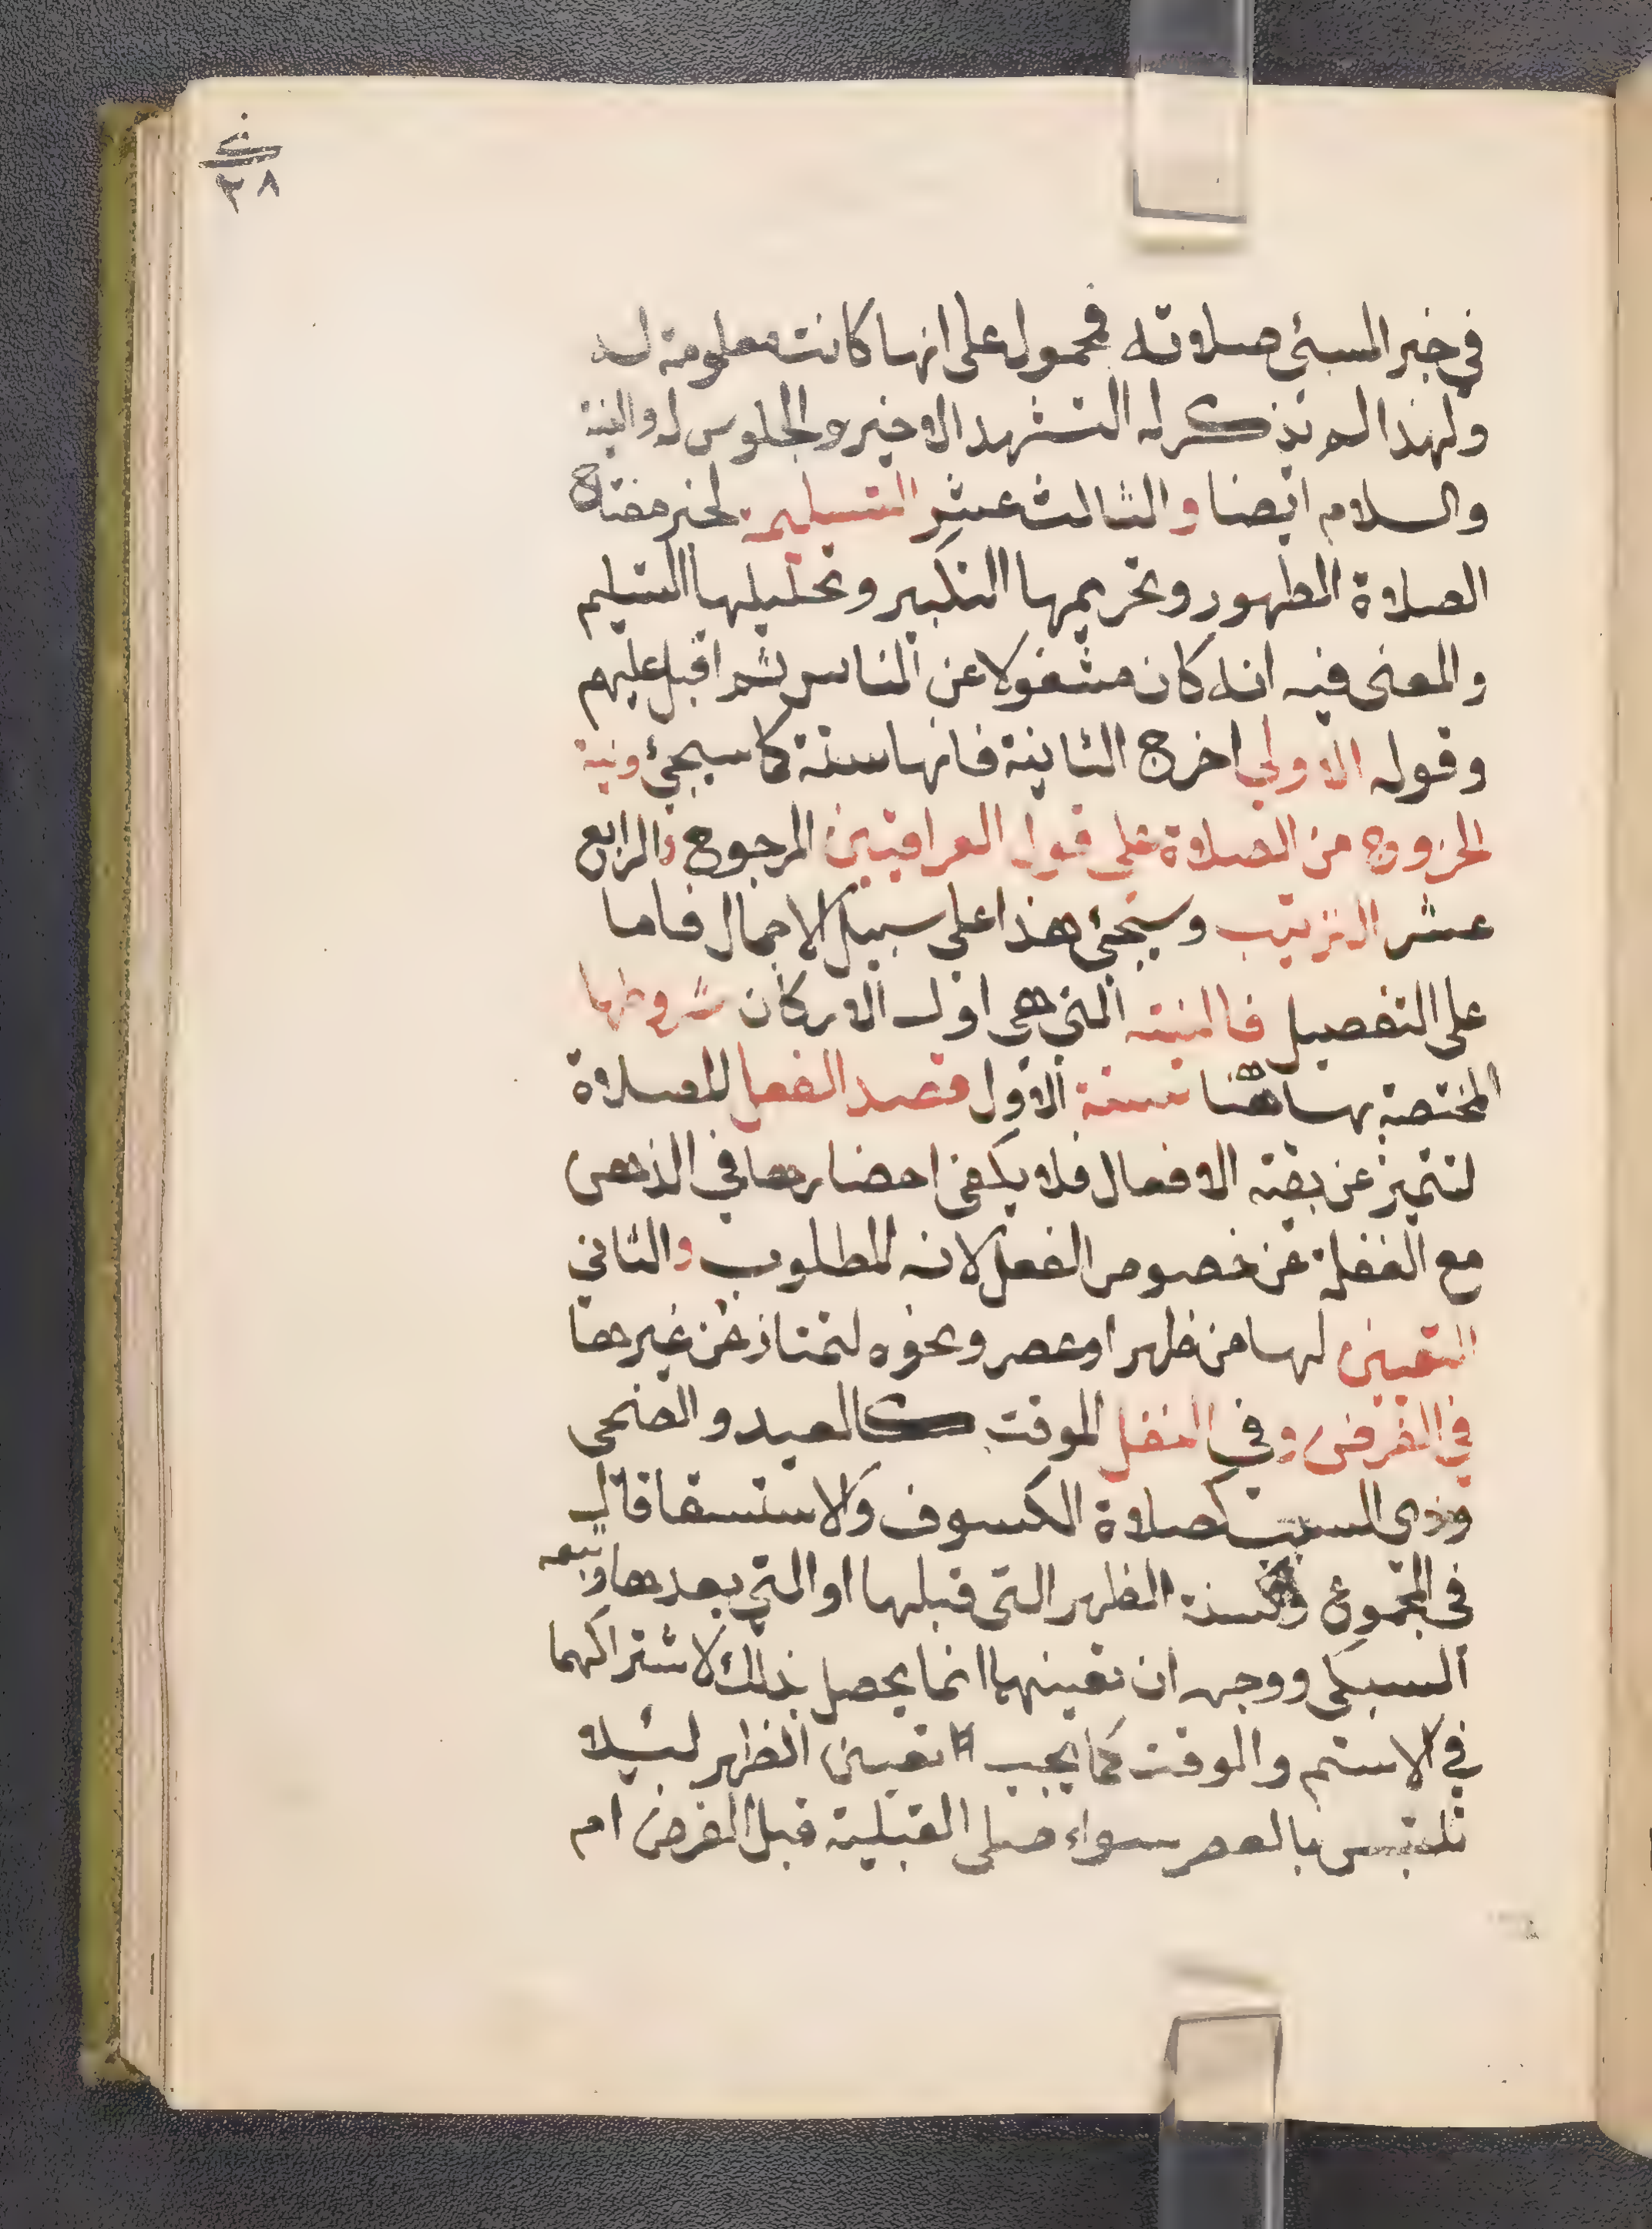 في
٢٨
في خبر المسئ صلاته فمحمول على انها كانت معلومة له
ولهذا لم يذكر له التشهد الاخير والجلوس له والنية
والسلام ايضا والثالث عشر التسليم لخبر مفتاح
الصلاة الطهور وتحريمها التكبير وتحليلها التسليم
والمعنى فيه انه كان مشغولا عن الناس ثم اقبل عليهم
وقوله الاولى اخرج الثانية فانها سنة كما سيجئ ونية
الخروج من الصلاة على قول العراقيين المرجوح والرابع
عشر الترتيب وسيجئ هذا على سبيل الاجمال فاما
على التفصيل فالنية التي هي اول الاركان شروطها
المختصة بها هنا ستة الاول قصد الفعل للصلاة
لتتميز عن بقية الافعال فلا يكفى احضارها في الذهن
مع الغفلة عن خصوص الفعل لانه المطلوب والثاني
التعيين لها من ظهر او عصر ونحوه لتمتاز عن غيرها
في الفرض وفي النفل الموقت كالعيد والضحى
وذي السبب كصلاة الكسوف والاستسقا قال
في المجموع وكسنة الظهر التي قبلها او التي بعدها وتبعه
السبكى ووجهه ان تعينهما انما يحصل بذلك لاشتراكهما
في الاسم والوقت كما يجب تعيين الظهر لئلا
تلتبس بالعصر سواء صلى القبلية قبل الفرض ام